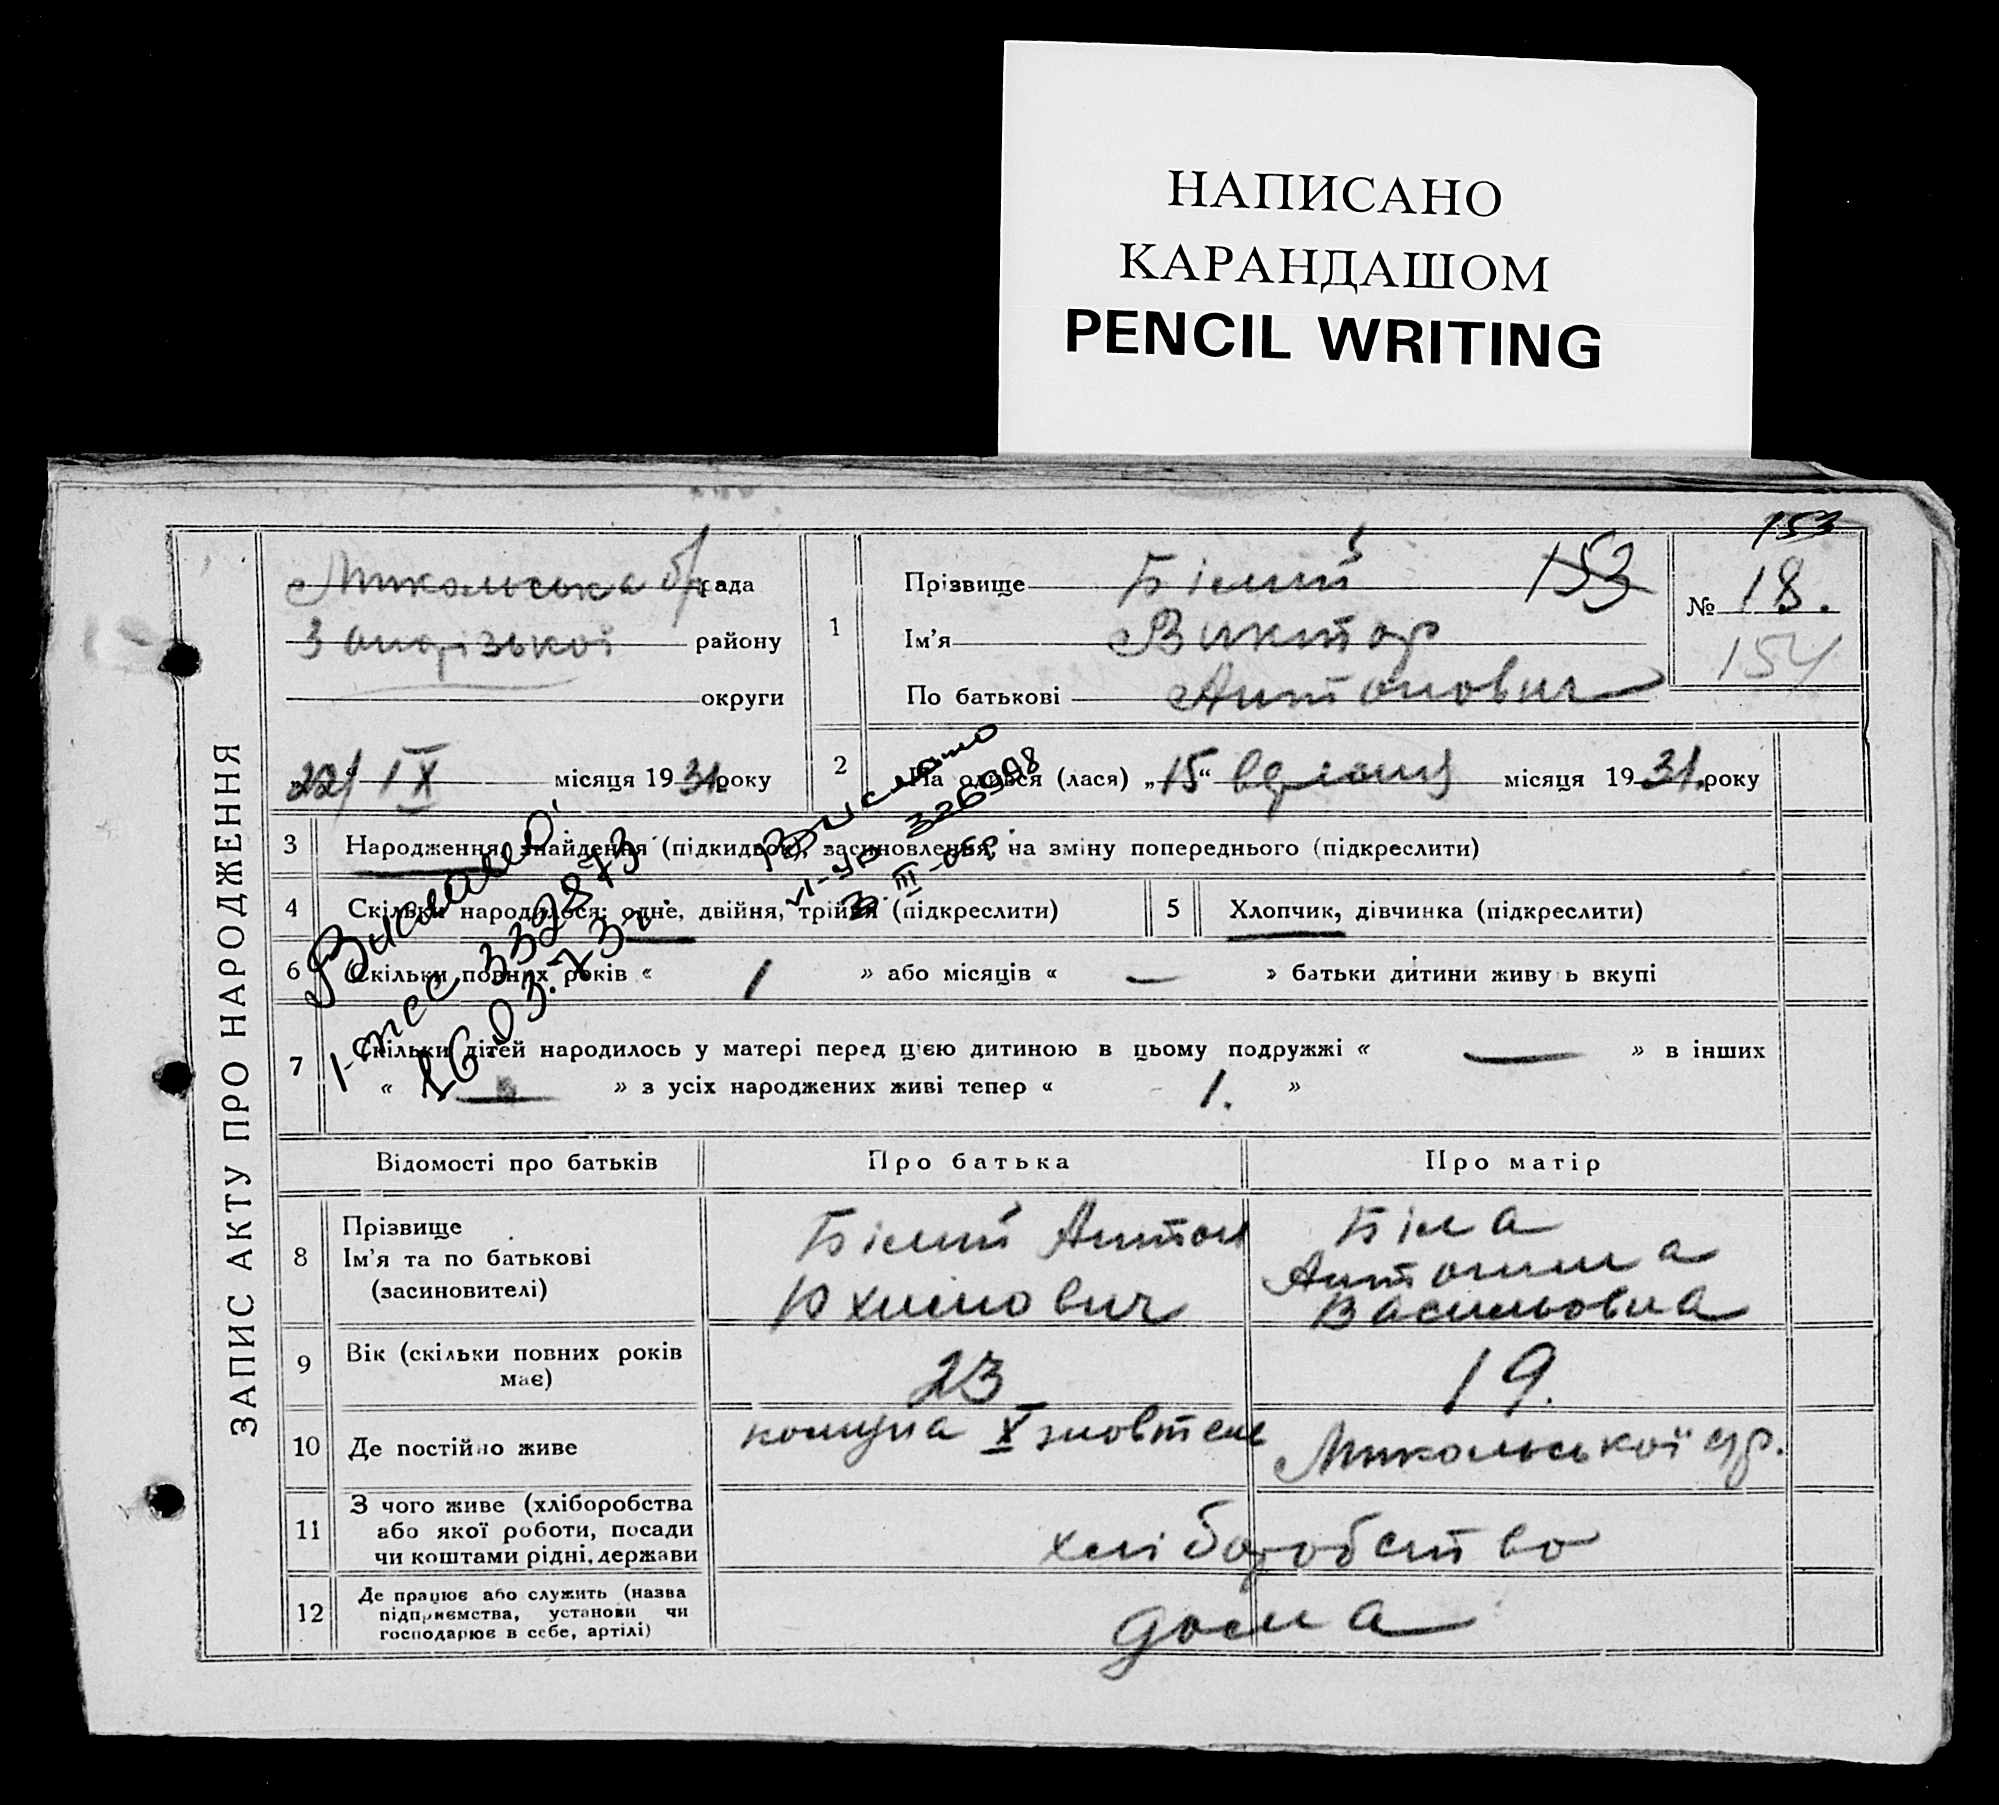 НАПИСАНО
КАРАНДАШОМ
PENCIL WRITING
ЗАПИС АКТУ ПРО НАРОДЖЕННЯ
Микольська рада
району
округи
22/ IX місяця 1931 року
1
Прізвище Білий
Ім'я Виктор
По батькові Антонович
153
153
№ 18.
154
2 „15“ місяця 1931. року
3 Народження, знайдення (підкидьок), засиновлення, на зміну попереднього (підкреслити)
4 Скільки народилося: одне, двійня, трійня (підкреслити)
5 Хлопчик, дівчинка (підкреслити)
6 Скільки повних років « 1 » або місяців « — » батьки дитини живуть вкупі
7 Скільки дітей народилось у матері перед цією дитиною в цьому подружжі « — » в інших
« — » з усіх народжених живі тепер « 1. »
Вислано
326998
332873
Відомості про батьків Про батька Про матір
8 Прізвище
Ім'я та по батькові
(засиновителі)
Білий Антон
Юхимович
Біла
Антонина
Васильовна
9 Вік (скільки повних років
має)
23
19.
10 Де постійно живе
комуна X жовтень Микольської
11 З чого живе (хліборобства
або якої роботи, посади
чи коштами рідні, держави
хліборобство
12 Де працює або служить (назва
підприємства, установи чи
господарює в себе, артілі)
дома